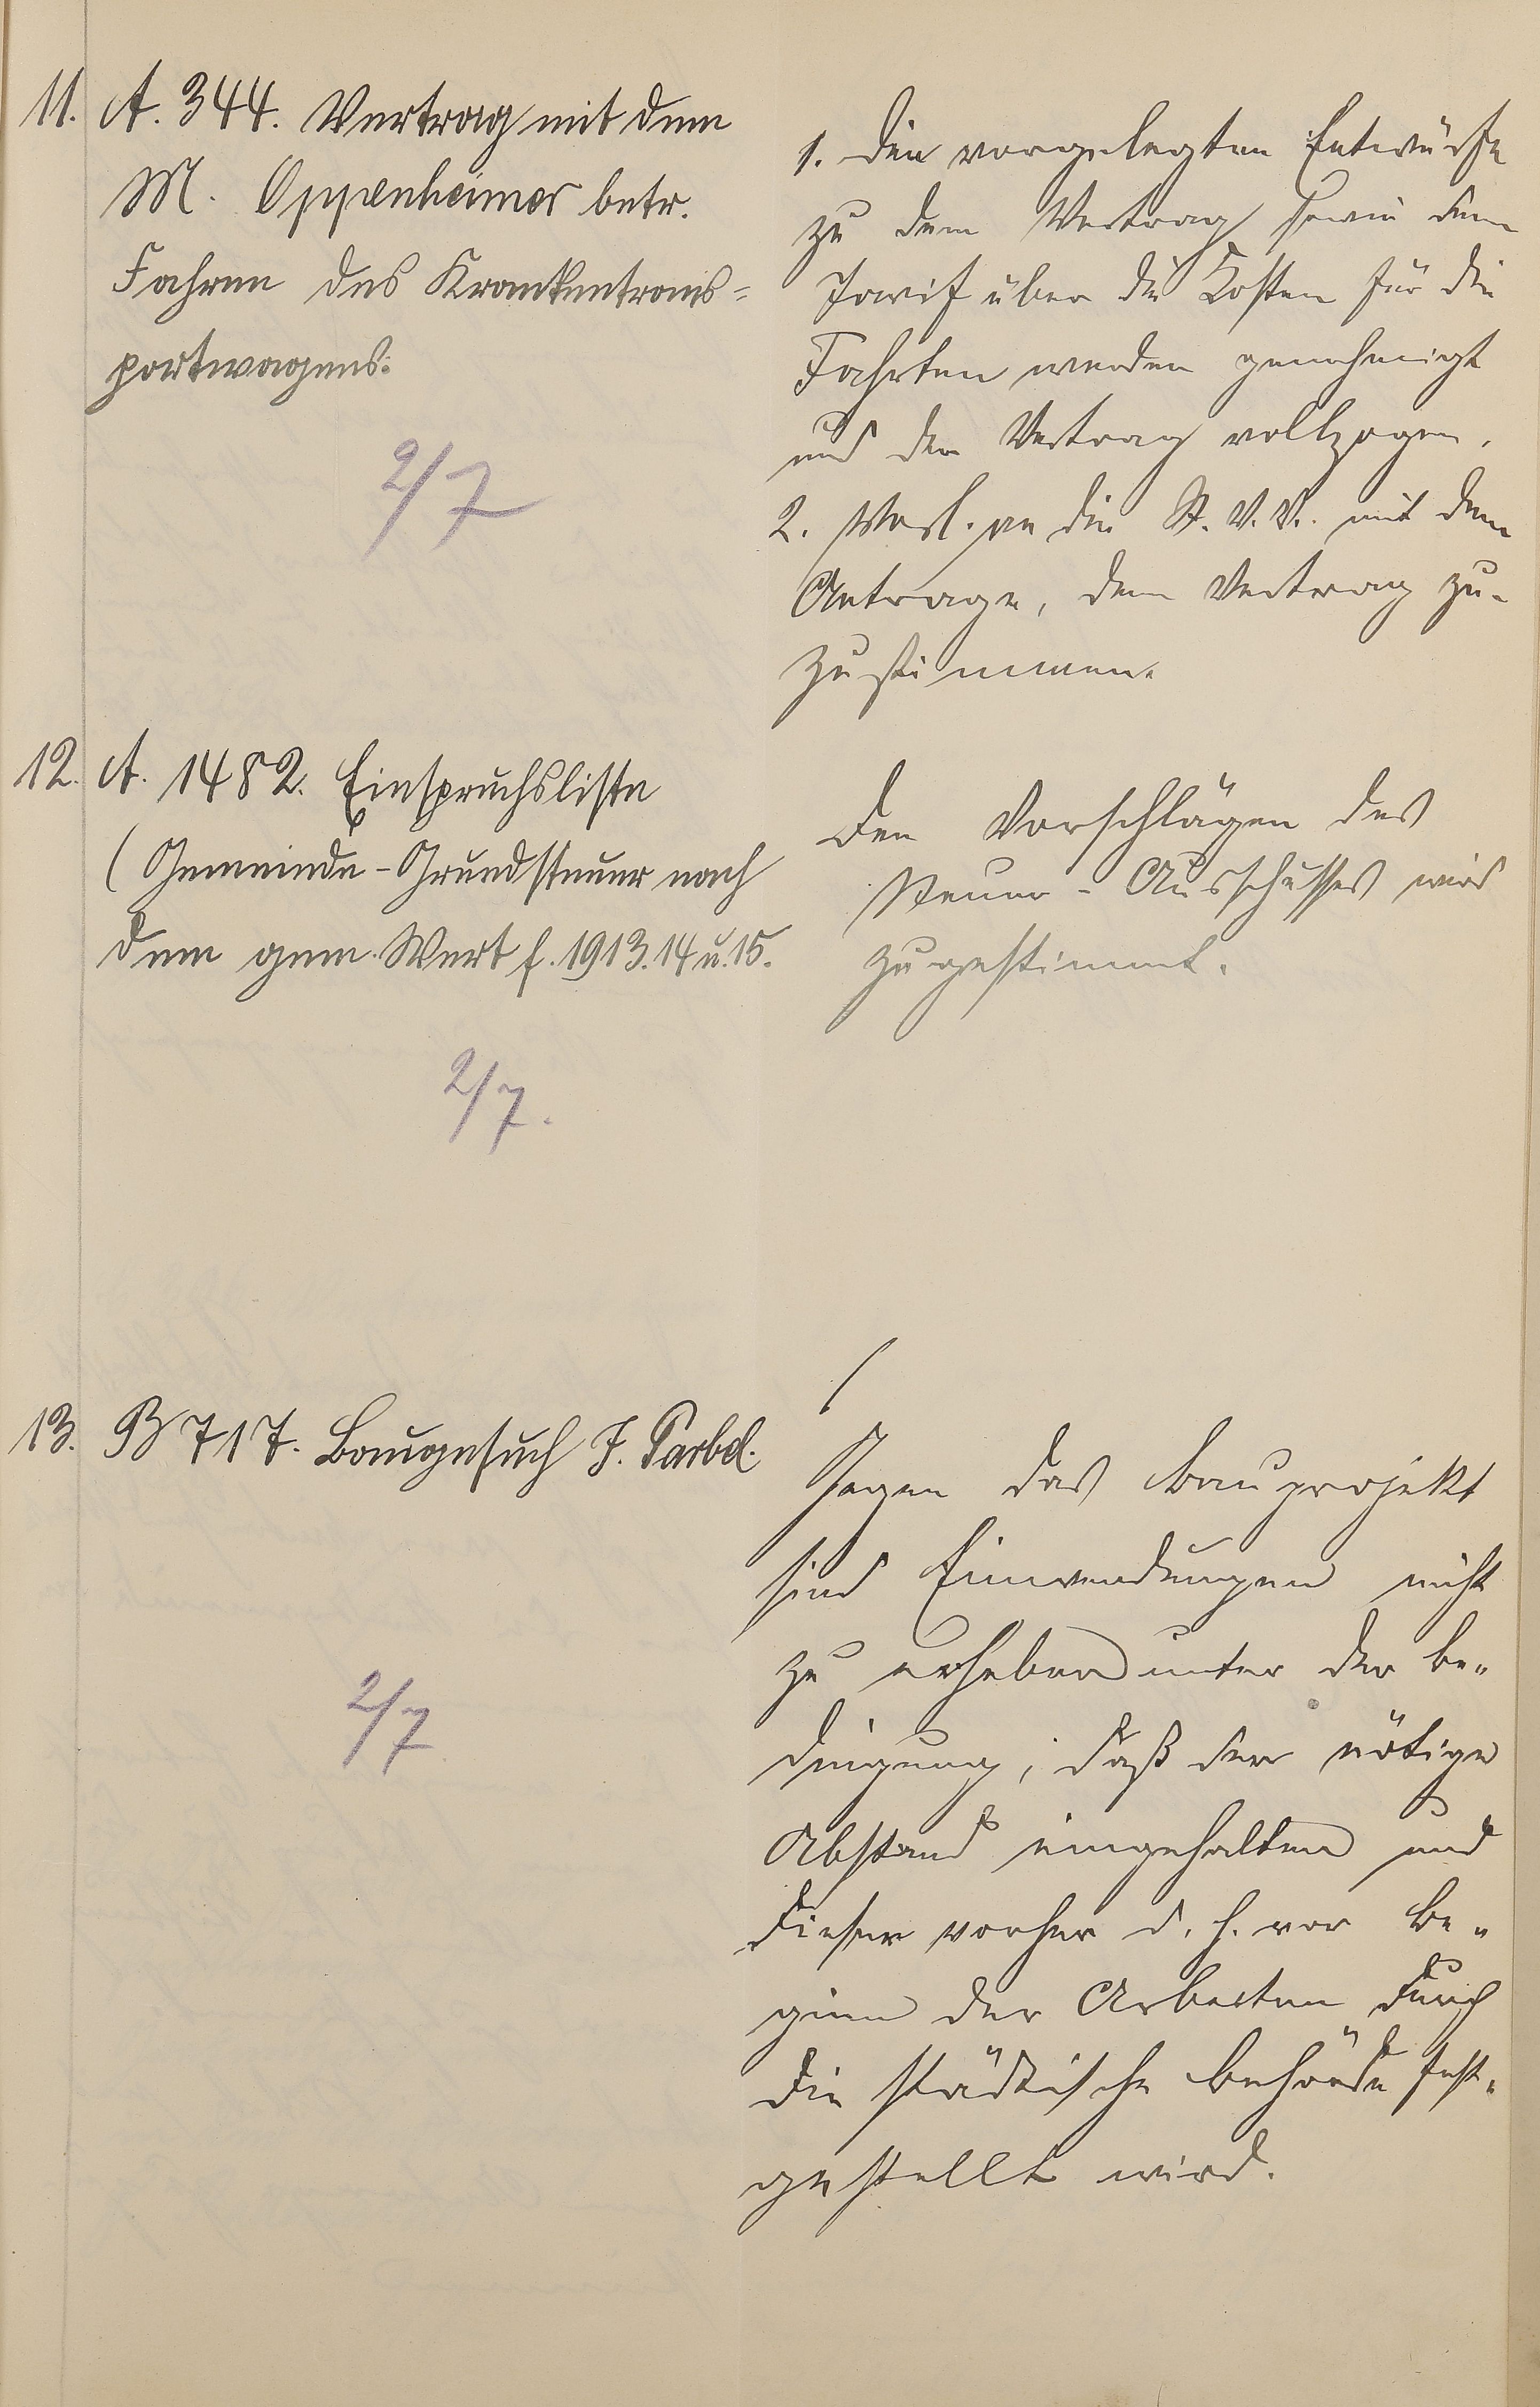 11. A. 344. Vertrag mit dem
M. Oppenheimer betr.
Fahren des Krankentrans-
portwagens.
2/7
1. Die vorgelegten Entwürfe
zu dem Vertrag sowie dem
Tarif über die Kosten für die
Fahrten werden genehmigt
und der Vertrag vollzogen.
2. Vorl. an die St. V. V. mit dem
Antrage, dem Vertrag zu-
zustimmen.
12. A. 1482. Einspruchsliste
(Gemeinde-Grundsteuer nach
dem gem. Wert f. 1913. 14 u. 15.
2/7.
Den Vorschlägen des
Steuer-Ausschusses wird
zugestimmt.
13. B 717. Baugesuch J.
2/7
Gegen das Bauprojekt
sind Einwendungen nicht
zu erheben unter der Be-
dingung, daß der nötige
Abstand eingehalten und
dieser vorher d. h. vor Be-
ginn der Arbeiten durch
die städtische Behörde fest-
gestellt wird.